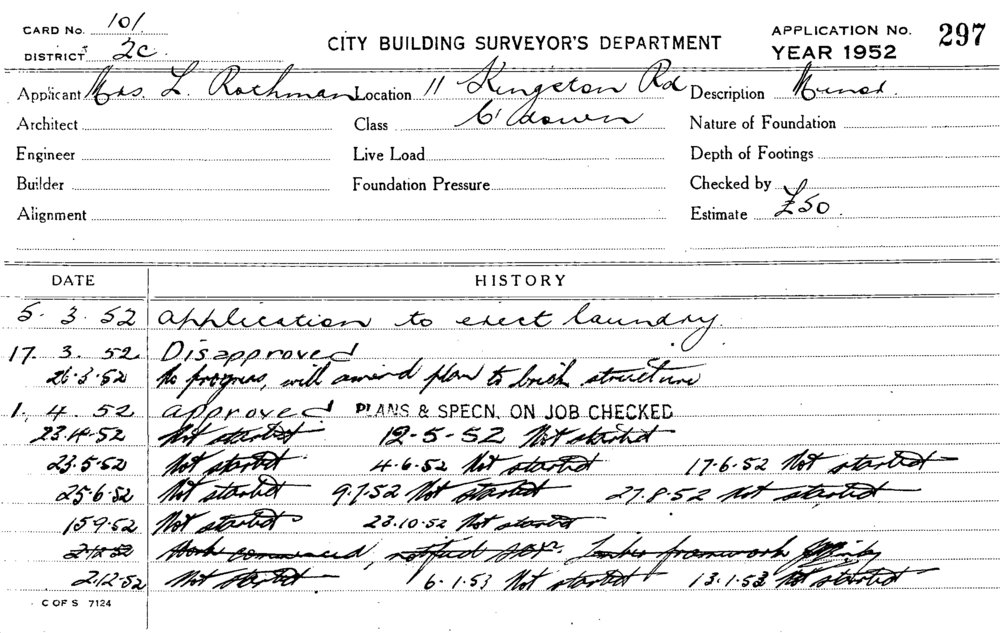 CARD No. 101 CITY BUILDING SURVEYOR'S DEPARTMENT APPLICATION No. 297
DISTRICT 2C YEAR 1952
Applicant Mrs. L. Rochman Location 11 Kingston Rd Description
Architect Class C'down Nature of Foundation
Engineer Live Load Depth of Footings
Builder Foundation Pressure Checked by
Alignment Estimate £50
DATE HISTORY
5. 3. 52 Application to erect laundry.
17. 3. 52 Disapproved
26.3.52 No progress, will amend plan to brick structure
1. 4. 52 Approved PLANS & SPECN. ON JOB CHECKED
23.4.52 Not started 12-5-52 Not started
23.5.52 Not started 4.6.52 Not started 17.6.52 Not started
25.6.52 Not started 9.7.52 Not started 27.8.52 Not started
15.9.52 Not started 23.10.52 Not started
Work commenced, notified framework
2.12.52 Not started 6.1.53 Not started 13.1.53 Not started
C OF S 7124